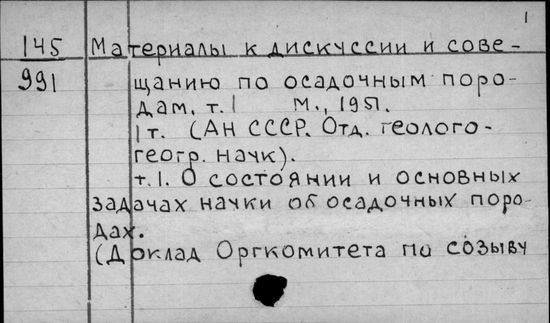 1
145 Материалы к дискуссии и сове-
991 щанию по осадочным поро-
дам. т. 1 М., 1951.
1 т. (АН СССР. Отд. геолого-
геогр. наук).
т. 1. О состоянии и основных
задачах науки об осадочных поро-
дах.
(Доклад Оргкомитета по созыву